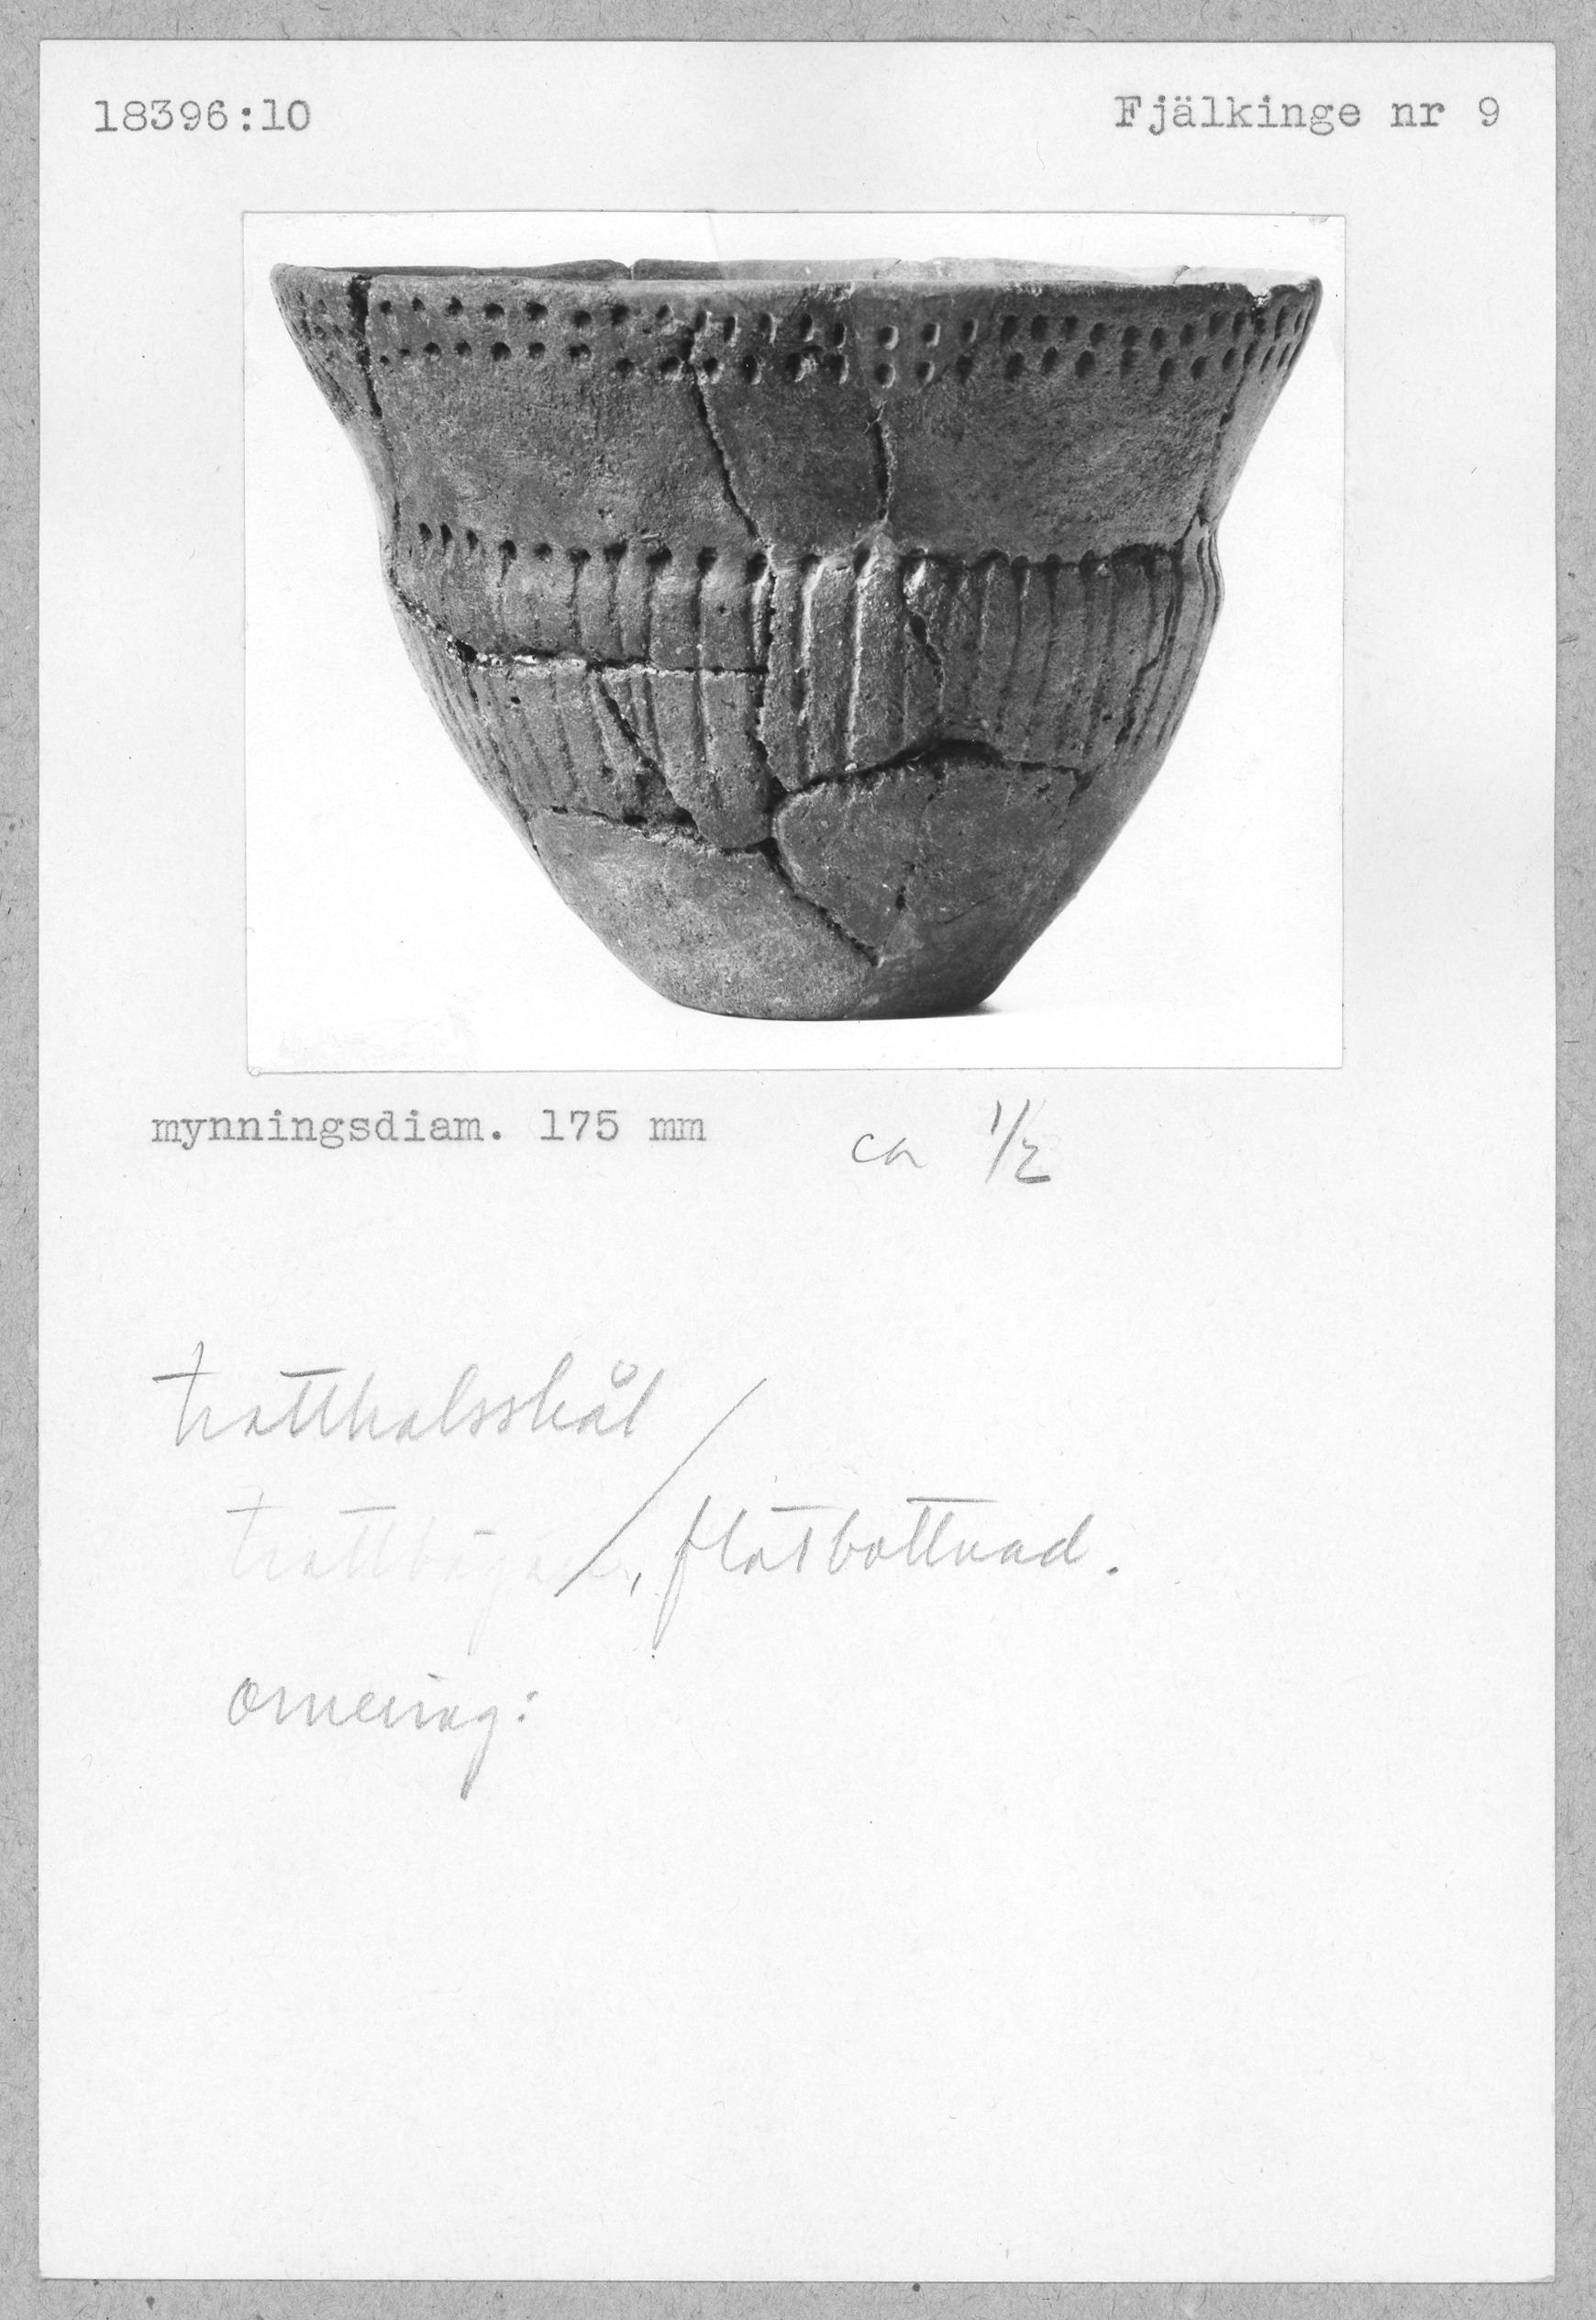 18396:10 Fjälkinge nr 9
mynningsdiam. 175 mm ca 1/2
tratthalsskål /
trattbägare, flatbottnad.
ornering: